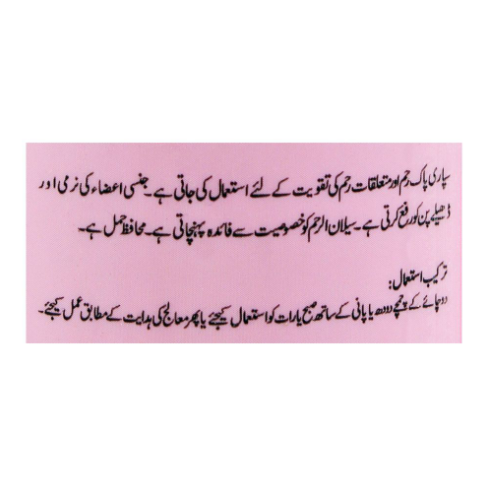 سپاری پاک رحم اور متعلقات رحم کی تقویت کے لئے استعمال کی جاتی ہے۔ جنسی اعضاء کی نرمی اور
ڈھیلے پن کو رفع کرتی ہے۔ سیلان الرحم کو خصوصیت سے فائدہ پہنچاتی ہے۔ محافظ حمل ہے۔
ترکیب استعمال:
دو چائے کے چمچے دودھ یا پانی کے ساتھ صبح یا رات کو استعمال کیجئے یا پھر معالج کی ہدایت کے مطابق عمل کیجئے۔